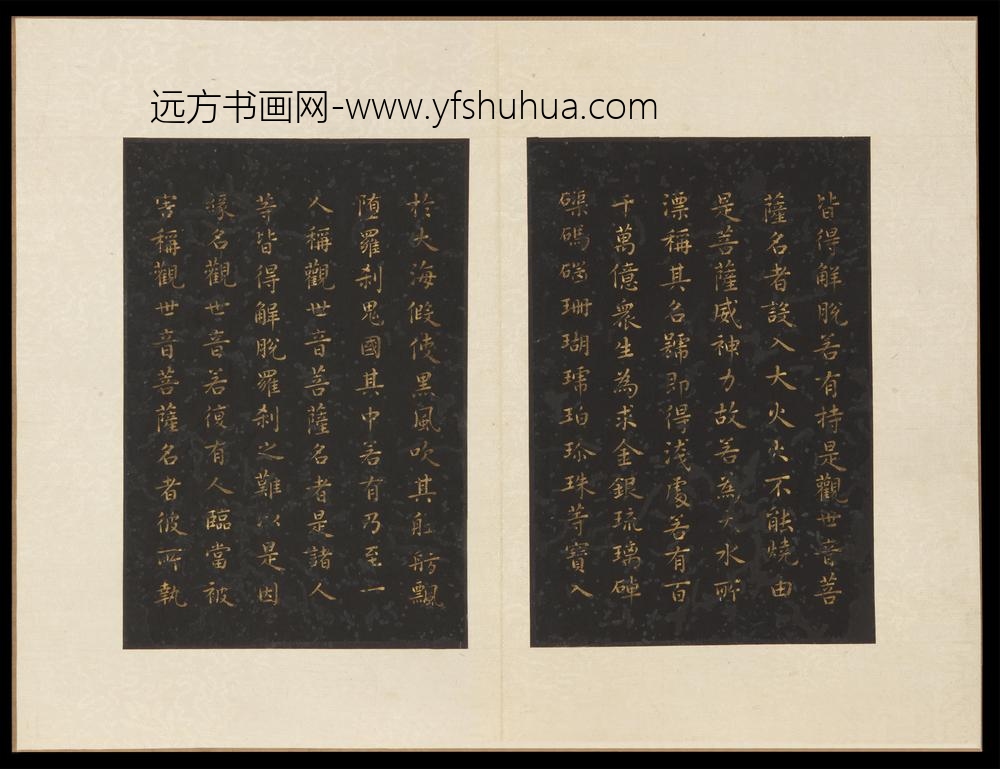 远方书画网-www.yfshuhua.com
皆得解脫若有持是觀世音菩
薩名者設入大火火不能燒由
是菩薩威神力故若為大水所
漂稱其名號即得淺處若有百
千萬億衆生為求金銀琉璃硨
磲碼碯珊瑚琥珀珍珠等寶入
於大海假使黑風吹其舡舫飄
墮羅剎鬼國其中若有乃至一
人稱觀世音菩薩名者是諸人
等皆得解脫羅剎之難以是因
緣名觀世音若復有人臨當被
害稱觀世音菩薩名者彼所執